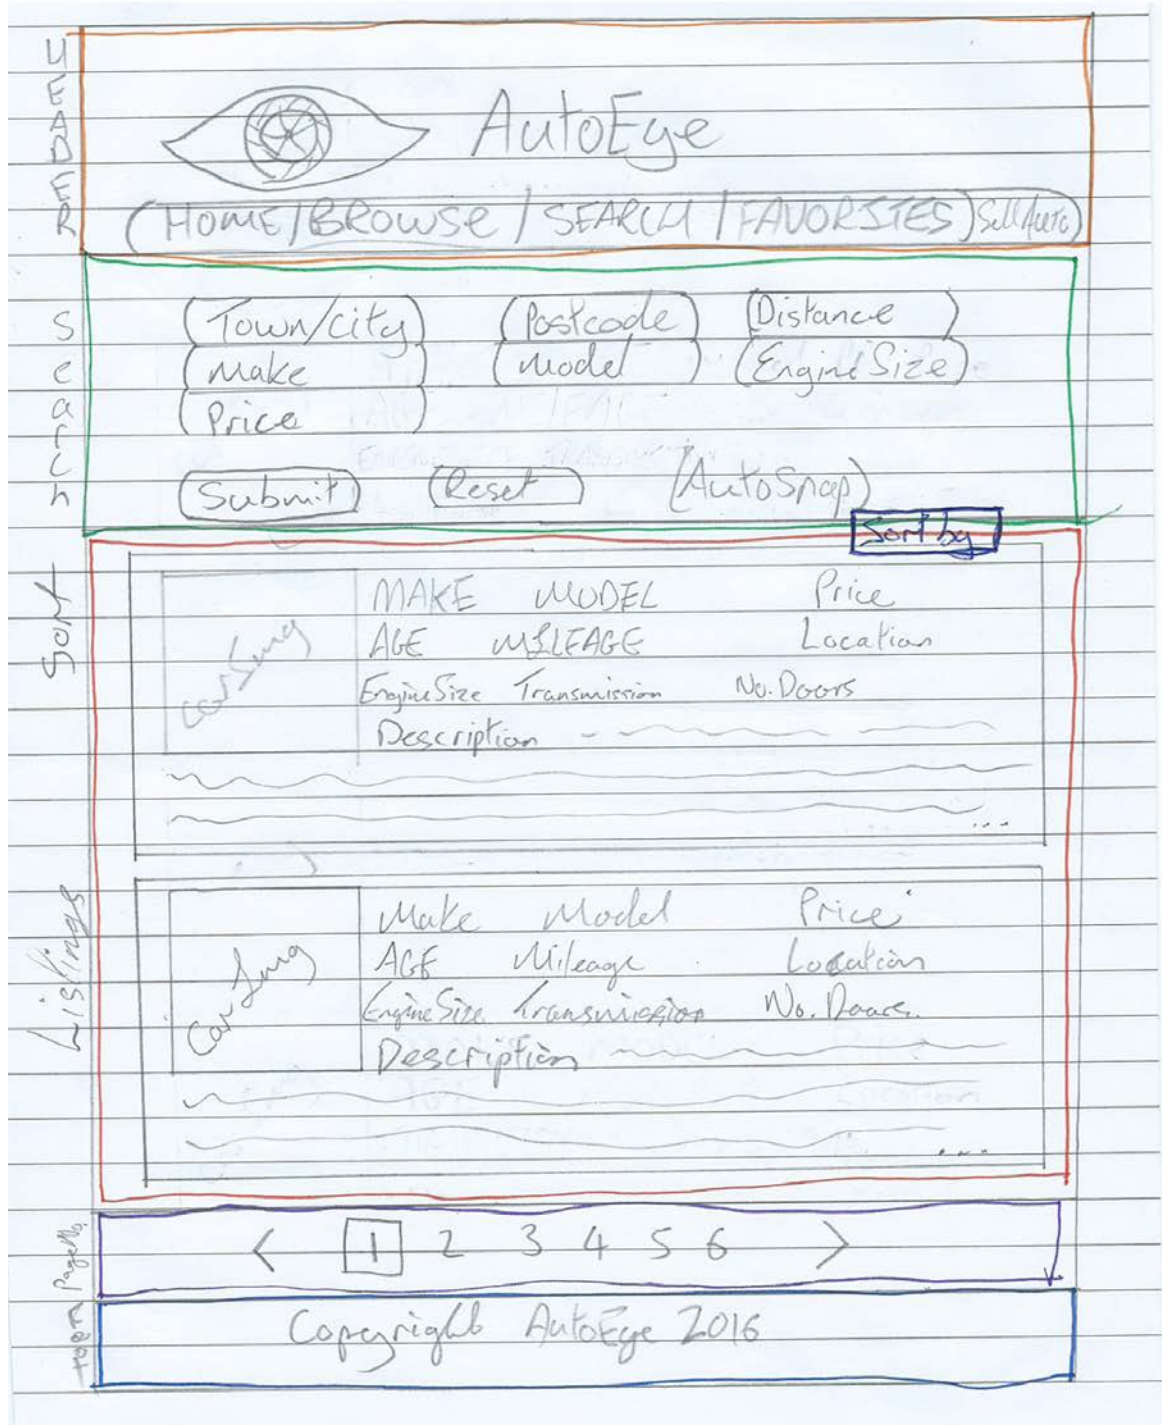 HEADER
AutoEye
HOME/BROWSE/SEARCH/FAVORITES Sell Auto
Search
Town/City Postcode Distance
Make Model Engine Size
Price
Submit Reset AutoSnap
Sort by
Sort
Car Img
MAKE MODEL Price
AGE MILEAGE Location
Engine Size Transmission No. Doors
Description
...
Listings
Car Img
Make Model Price
AGE Mileage Location
Engine Size Transmission No. Doors
Description
...
Page No.
< 1 2 3 4 5 6 >
Copyright AutoEye 2016